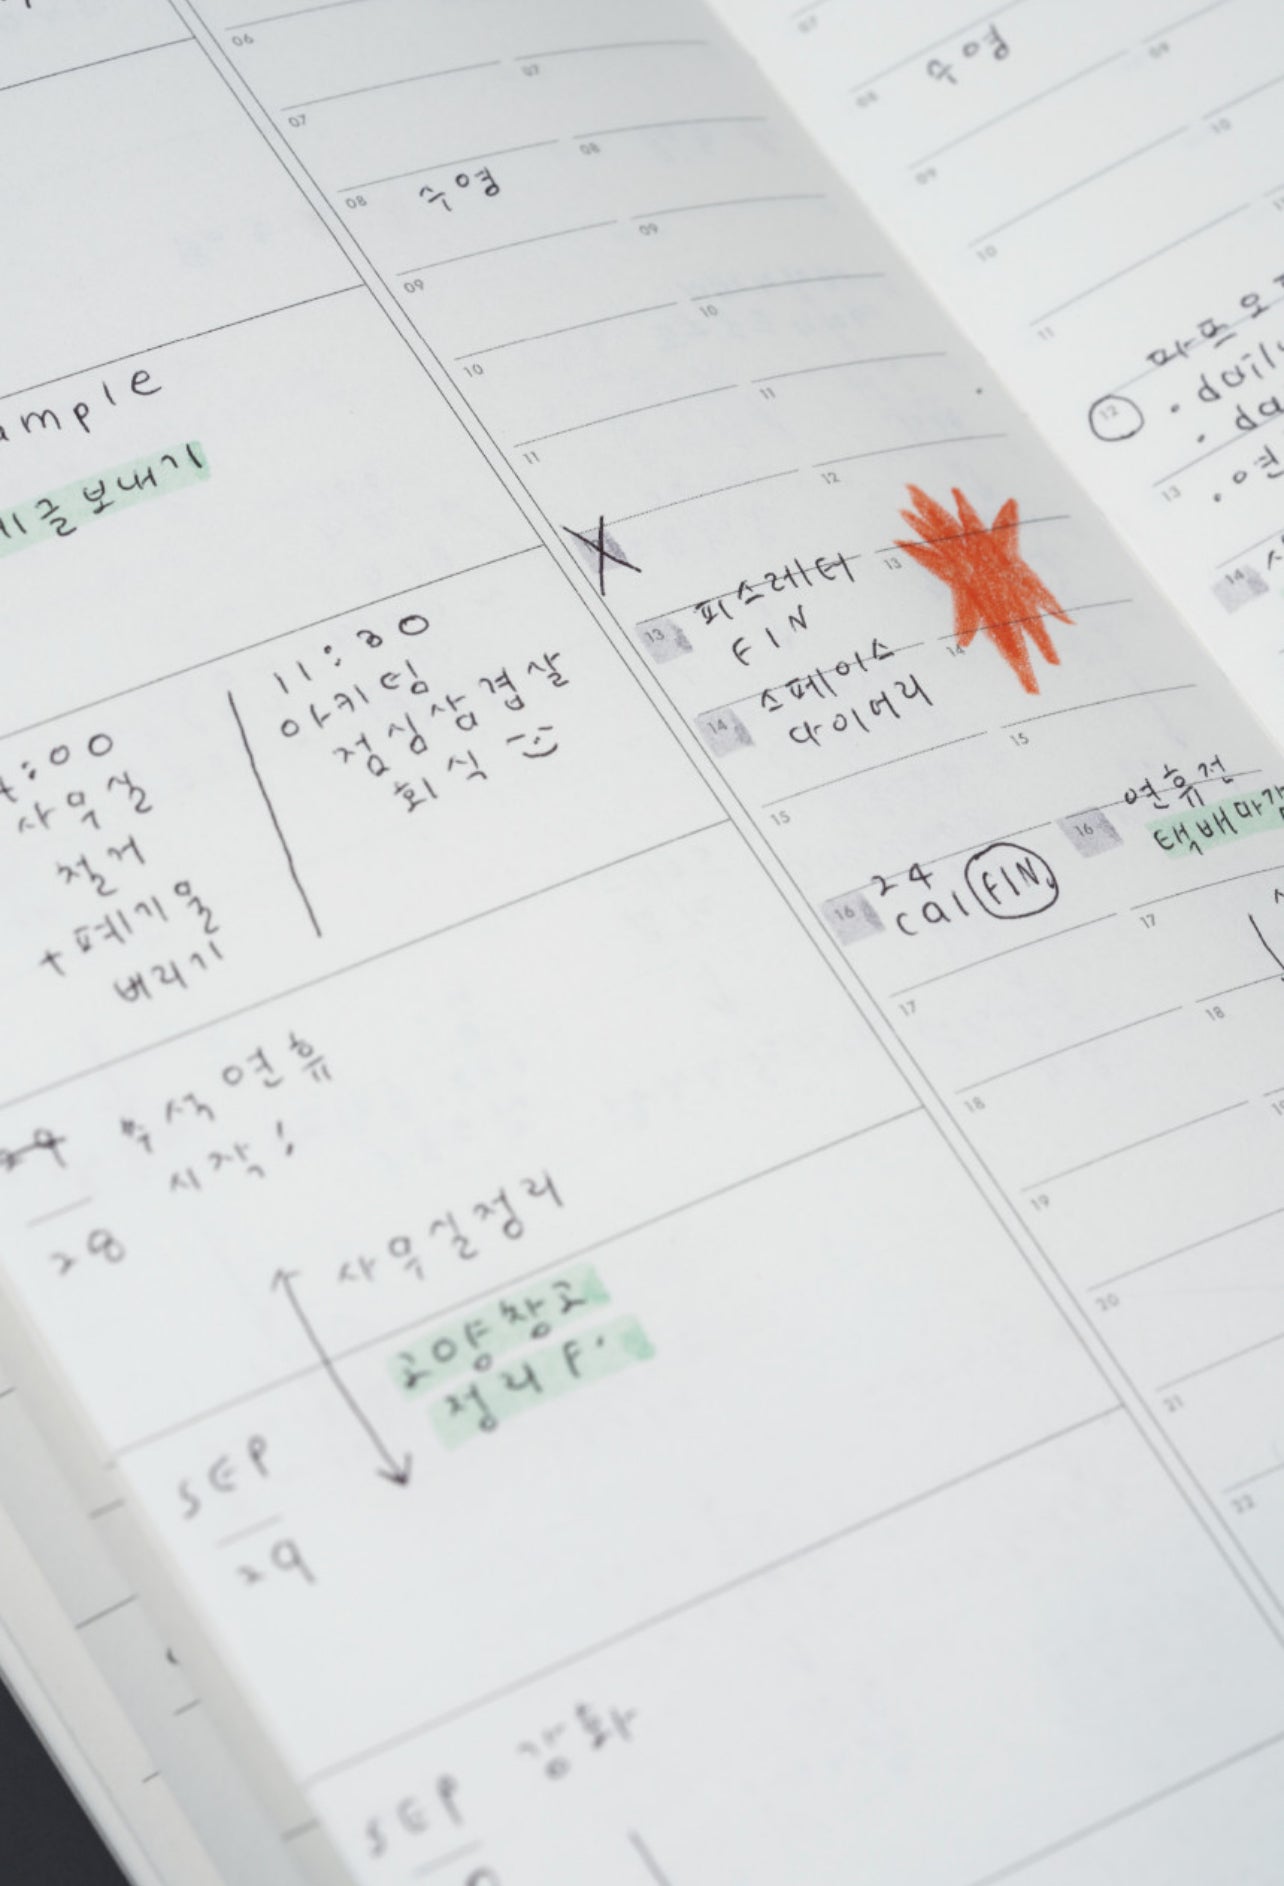 06
07
07
08
08
수영
09
09
10
10
11
11
12
13
피스레터
FIN
13
14
스페이스
다이어리
14
15
15
16
24
cal FIN.
16
연휴전
택배마감
17
17
18
18
19
20
21
22
07
08
수영
09
09
10
10
11
12
· daily
13
14
보내기
11:30
아키팀
점심삼겹살
회식
:00
사무실
철거
+폐기물
버리기
추석연휴
시작!
29
28
사무실정리
고양창고
정리 F.
SEP
29
SEP
강화